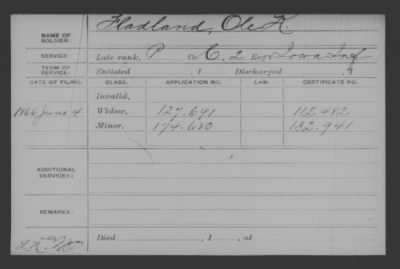 NAME OF SOLDIER: Fladland, Ole K.
SERVICE: Late rank, P Co. C, 2 Reg't Iowa Inf
TERM OF SERVICE: Enlisted , 1 Discharged , 1
DATE OF FILING. CLASS. APPLICATION NO. LAW. CERTIFICATE NO.
Invalid,
1866 June 4 Widow, 127.641 112.482
Minor, 174.680 122.941
ADDITIONAL SERVICES:
REMARKS:
Died , 1 , at